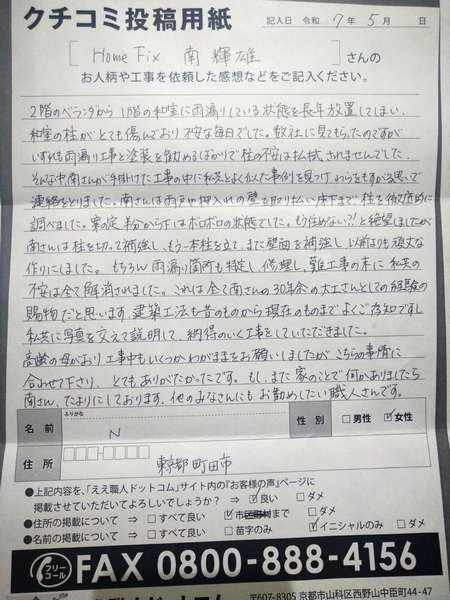 クチコミ投稿用紙
記入日 令和 7年 5月 日
[ Home Fix 南 輝雄 ] さんの
お人柄や工事を依頼した感想などをご記入ください。
2階のベランダから1階の和室に雨漏りしている状態を長年放置してしまい、
和室の柱がとても傷んでおり不安な毎日でした。数社に見てもらったのですが
いずれも雨漏り工事と塗装を勧めるばかりで柱の不安は払拭されませんでした。
そんな中、南さんが手掛けた工事の中に私共とよく似た事例を見つけ、わらをもすがる思いで
連絡をとりました。南さんは雨戸や押入れの壁を取り払い、床下まで柱を徹底的に
調べました。案の定、半分から下はボロボロの状態でした。もう住めない?!と絶望しましたが
南さんは柱を切って補強し、もう一本柱を立て、また壁面を補強し以前よりも頑丈な
作りにしました。もちろん雨漏り箇所も特定し、修理し、難工事の末に私共の
不安は全て解消されました。これは全て南さんの30年余の大工さんとしての経験の
賜物だと思います。建築工法も昔のものから現在のものまでよくご存知ですし
私共に写真を交えて説明して、納得のいく工事をしていただきました。
高齢の母がおり工事中もいくつかわがままをお願いしましたが、こちらの事情に
合わせて下さり、とてもありがたかったです。もし、また家のことで何かありましたら
南さん、たよりにしております。他のみなさんにもお勧めしたい職人さんです。
ふりがな
名前 N 性別 □男性 ☑女性
住所 □□□-□□□□
東京都町田市
●上記内容を、「ええ職人ドットコム」サイト内の『お客様の声』ページに
掲載させていただいてよろしいでしょうか? ⇒ ☑良い □ダメ
●住所の掲載について ⇒ □すべて良い ☑市区町村まで □ダメ
●名前の掲載について ⇒ □すべて良い □苗字のみ ☑イニシャルのみ □ダメ
フリーコール FAX 0800-888-4156
〒607-8305 京都市山科区西野山中臣町44-47